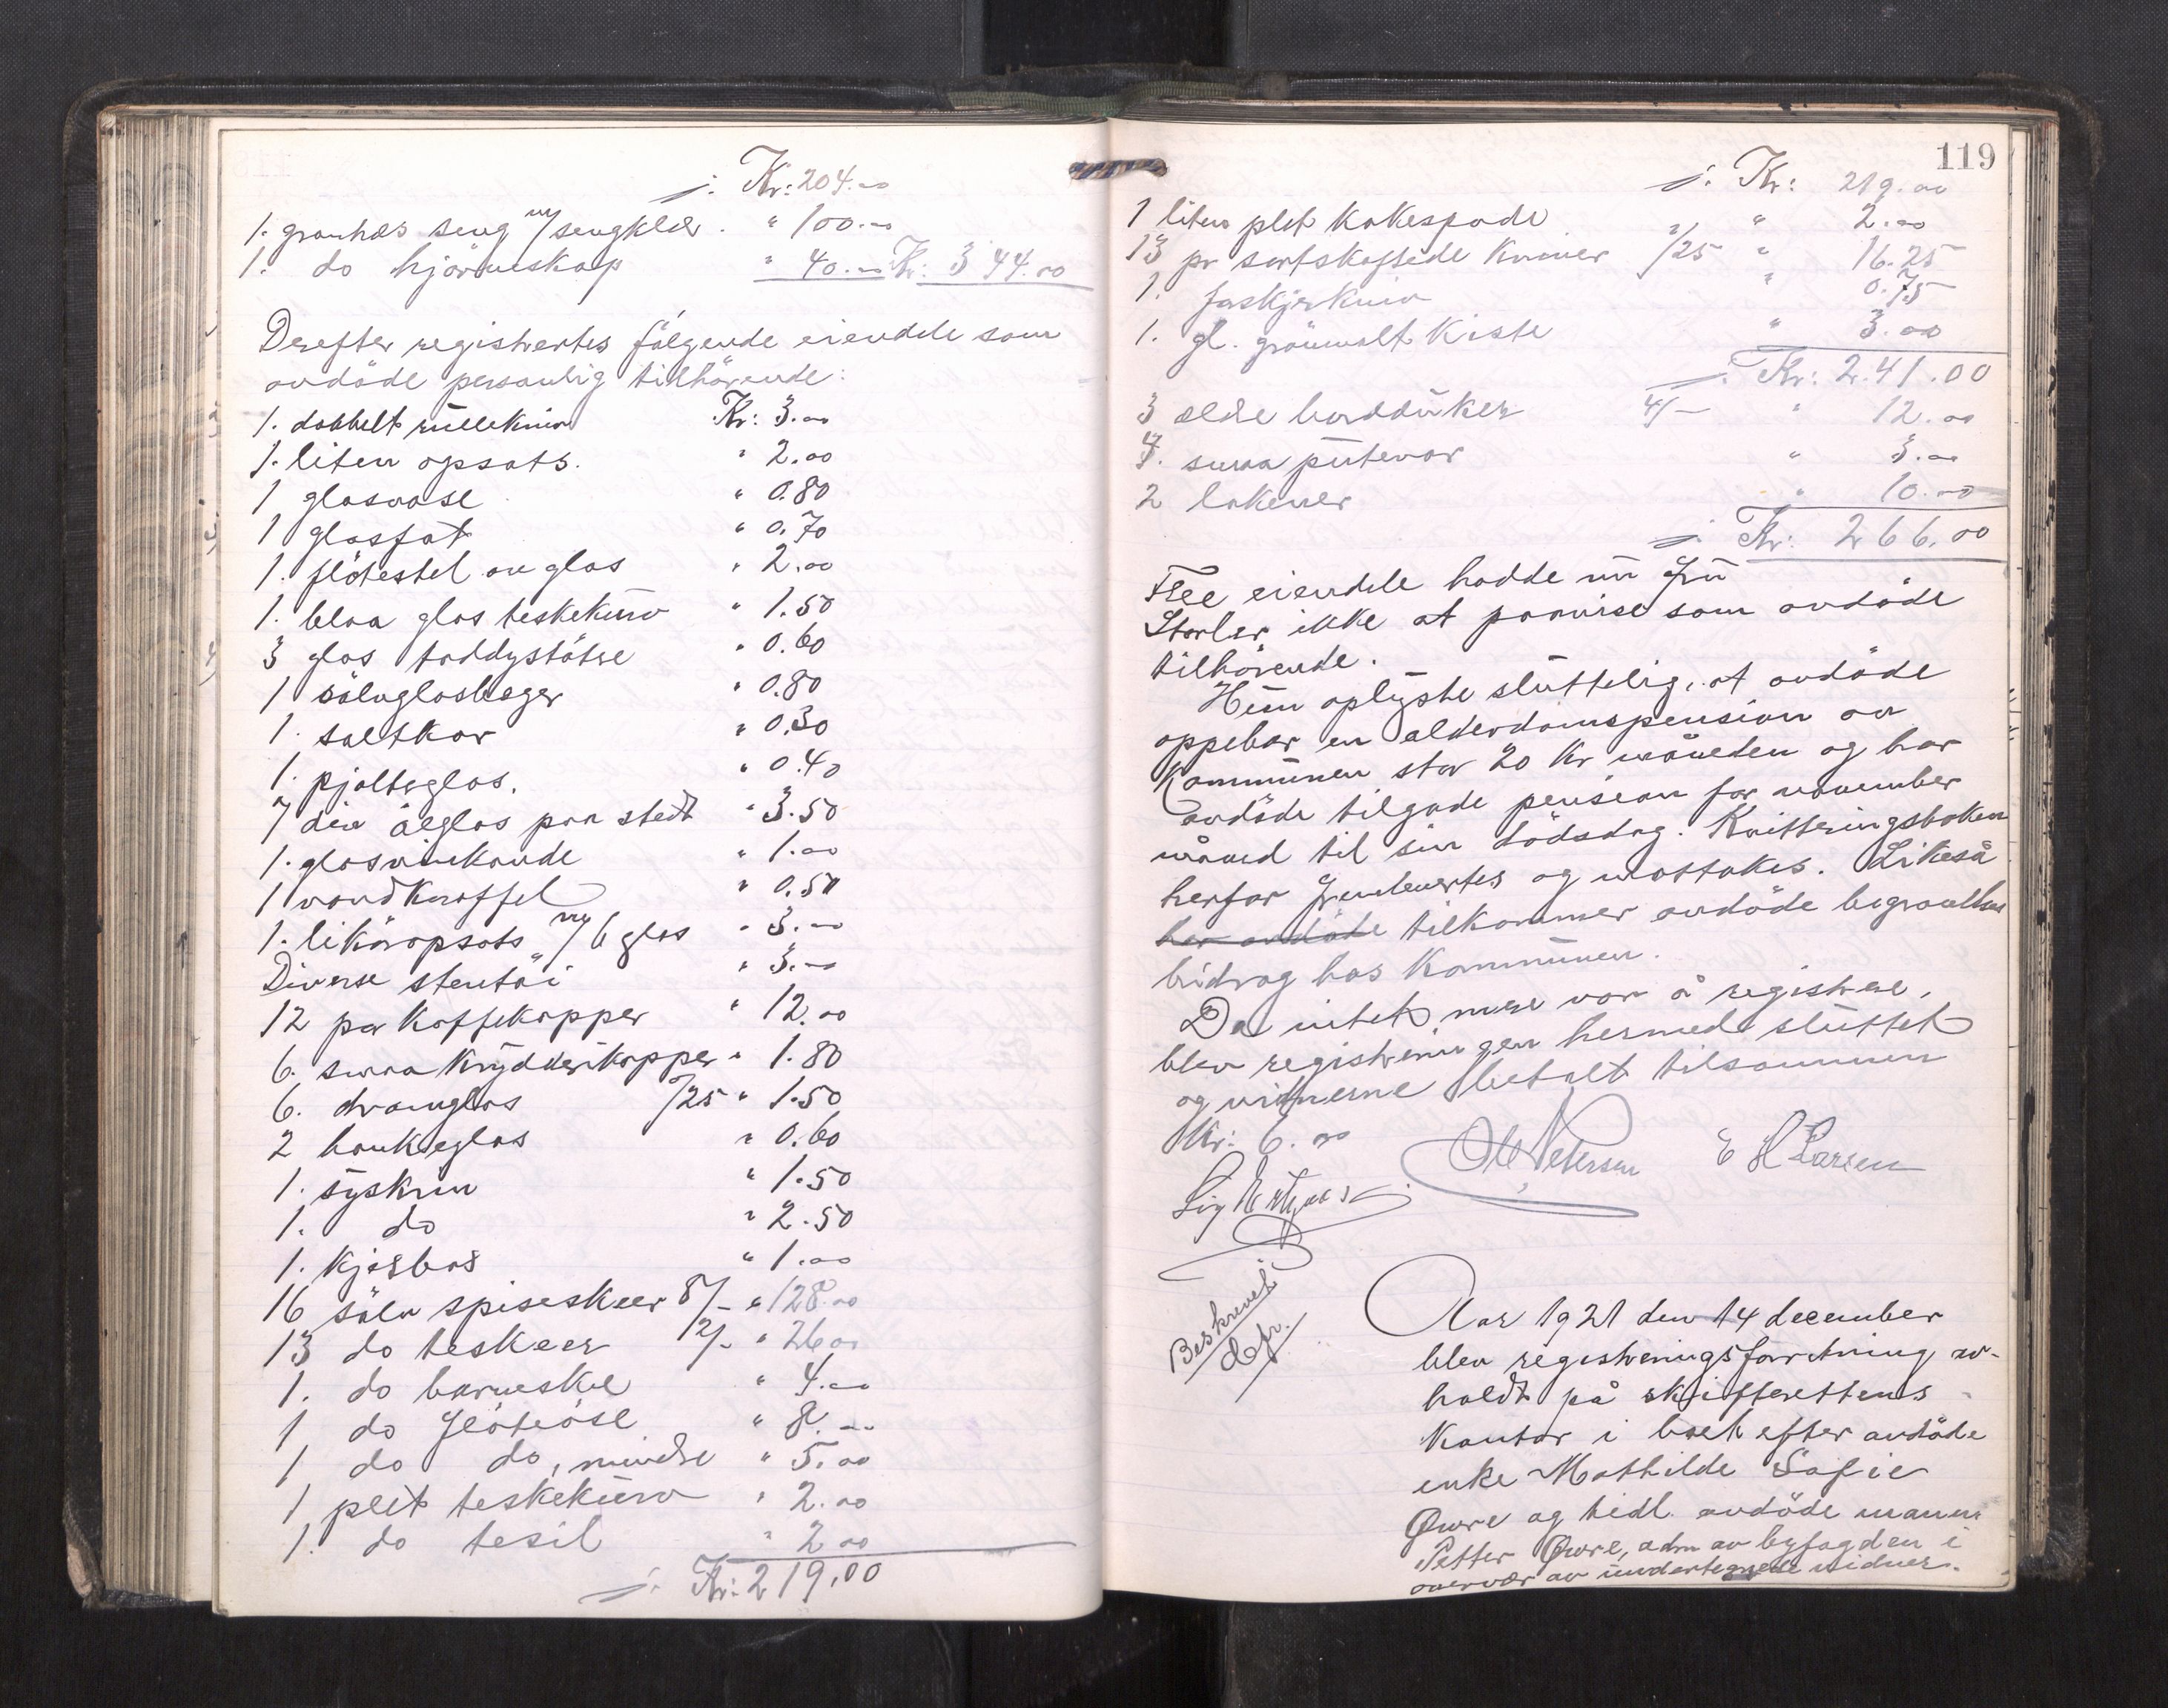 ./. Kr: 204.00
1. granhøs seng m/sengklær. " 100.00
1. do hjørneskap " 40.00 Kr: 344.00
Derefter registrertes følgende eiendele som
avdöde personlig tilhörende:
1. dobbelt rullekniv Kr: 3.00
1. liten opsats. " 2.00
1 glasvase " 0.80
1 glasfat " 0.70
1. flötestel av glas " 2.00
1. blaa glas teskekurv " 1.50
3 glas toddystötere " 0.60
1 sölvglasbeger " 0.80
1. saltkar " 0.30
1. pjolterglas. " 0.40
7 div ölglas paa stett " 3.50
1. glasvinkande " 1.00
1 vandkaraffel " 0.50
1. liköropsats m/6 glas " 3.00
Diverse stentöi " 3.00
12 par kaffekopper " 12.00
6. smaa krydderikopper " 1.80
6. dramglas /25 " 1.50
2 hankeglas " 0.60
1. syskrin " 1.50
1. do " 2.50
1. kjexbox " 1.00
16 sölv spiseskeer 8/- " 128.00
13 do teskeer 2/- " 26.00
1. do barneske " 4.00
1 do flöteöse " 8.00
1 do do, mindre " 5.00
1 plett teskekurv " 2.00
1. do tesil " 2.00
./. Kr: 219.00
119
./. Kr: 219.00
1 liten plet kakespade " 2.00
13 pr sortskaftede kniver 1/25 " 16.25
1. forskjærkniv " 0.75
1. gl. grönmalt kiste " 3.00
./. Kr: 241.00
3 ældre bordduker 4/- " 12.00
4. smaa putevar " 3.00
2 lakener " 10.00
./. Kr: 266.00
Flee eiendele hadde nu fru
Storler ikke at paavise som avdöde
tilhörende.
Hun oplyste sluttelig, at avdöde
oppebar en alderdomspension av
kommunen stor 20 kr måneden og har
avdöde tilgode pension for november
måned til sin dödsdag. Kvitteringsboken
herfor fremlagdes og mottokes. Likeså
har avdöde tilkommer avdöde begravelses
bidrag hos kommunen.
Da intet mere var å registrere,
blev registreringen hermed sluttet
og vidnerne betalt tilsammen
Kr: 6.00
O. Petersen E H Larsen
Beskrevet
Aar 1921 den 14 december
blev registreringsforretning av-
holdt på skifterettens
kontor i boet efter avdöde
enke Mathilde Sofie
Øwre og tidl. avdöde mann
Petter Øwre, adm av byfogden i
overvær av undertegnede vidner.